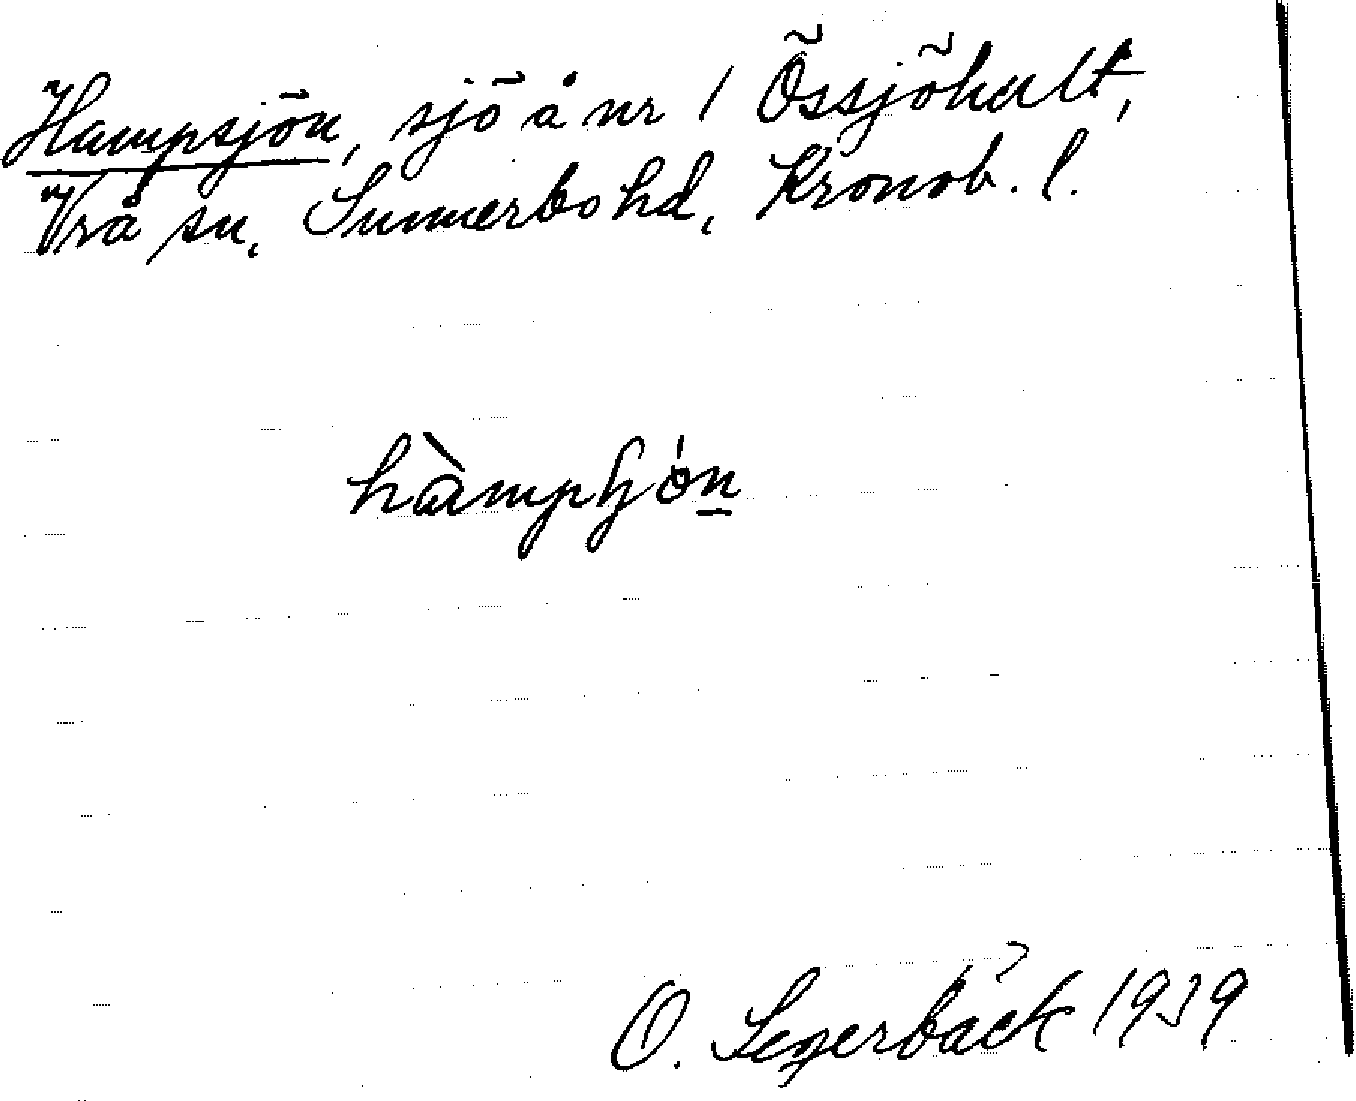 Hampsjön, sjö å nr 1 Össjöhult,
Vrå sn, Sunnerbo hd, Kronob. l.
O. Segerbäck 1939